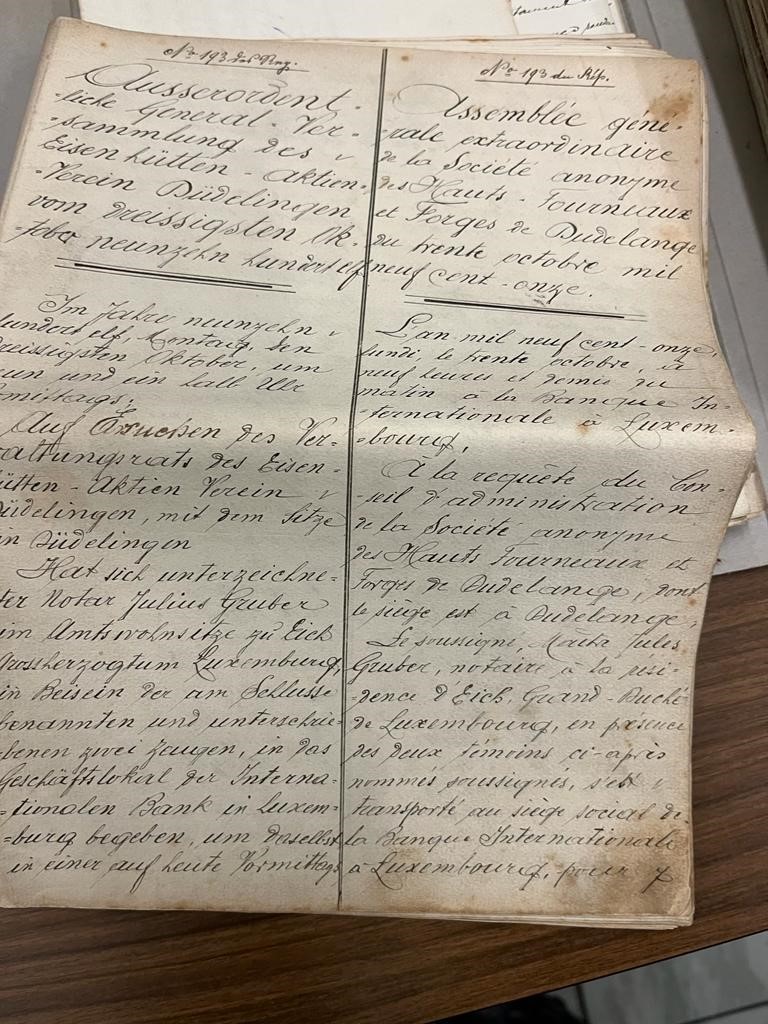 No 193 des Reg.
Ausserordent-
-liche General-Ver-
-sammlung des
Eisenhütten-Aktien-
-Verein Düdelingen
vom dreissigsten Ok-
-tober neunzehn hundert elf
Im Jahre neunzehn
hundert elf, Montag, den
dreissigsten Oktober, um
neun und ein halb Uhr
Vormittags;
Auf Ersuchen des Ver-
waltungsrats des Eisen-
hütten-Aktien Verein
Düdelingen, mit dem Sitze
in Düdelingen
Hat sich unterzeichne-
ter Notar Julius Gruber
im Amtswohnsitze zu Eich
Grossherzogtum Luxemburg,
in Beisein der am Schlusse
benannten und unterschrie-
benen zwei Zeugen, in das
Geschäftslokal der Interna-
-tionalen Bank in Luxem-
-burg begeben, um daselbst
in einer auf heute Vormittags
No 193 du Rép.
Assemblée géné-
-rale extraordinaire
de la Société anonyme
des Hauts-Fourneaux
et Forges de Dudelange
du trente octobre mil
neuf cent-onze.
L'an mil neuf cent-onze,
lundi, le trente octobre, à
neuf heures et demie du
matin à la Banque In-
-ternationale à Luxem-
-bourg,
À la requête du Con-
-seil d'administration
de la Société anonyme
des Hauts Fourneaux et
Forges de Dudelange, dont
le siège est à Dudelange,
Le soussigné, Maître Jules
Gruber, notaire à la rési-
-dence d'Eich, Grand-Duché
de Luxembourg, en présence
des deux témoins ci-après
nommés soussignés, s'est
transporté au siège social de
la Banque Internationale
à Luxembourg, pour y